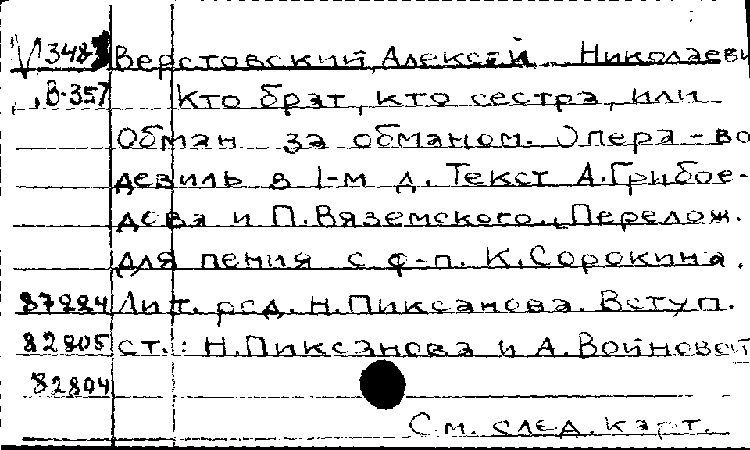 VI 3487 Верстовский, Алексей Николаеви
В-357 Кто брат, кто сестра, или
Обман за обманом. Опера-во
девиль в 1-м д. Текст А.Грибое-
дова и П.Вяземского. Перелож.
для пения с ф-п. К.Сорокина.
87224 Лит. ред. Н.Пиксанова. Вступ.
82805 ст.: Н.Пиксанова и А.Войновой
82804
См. след. карт.